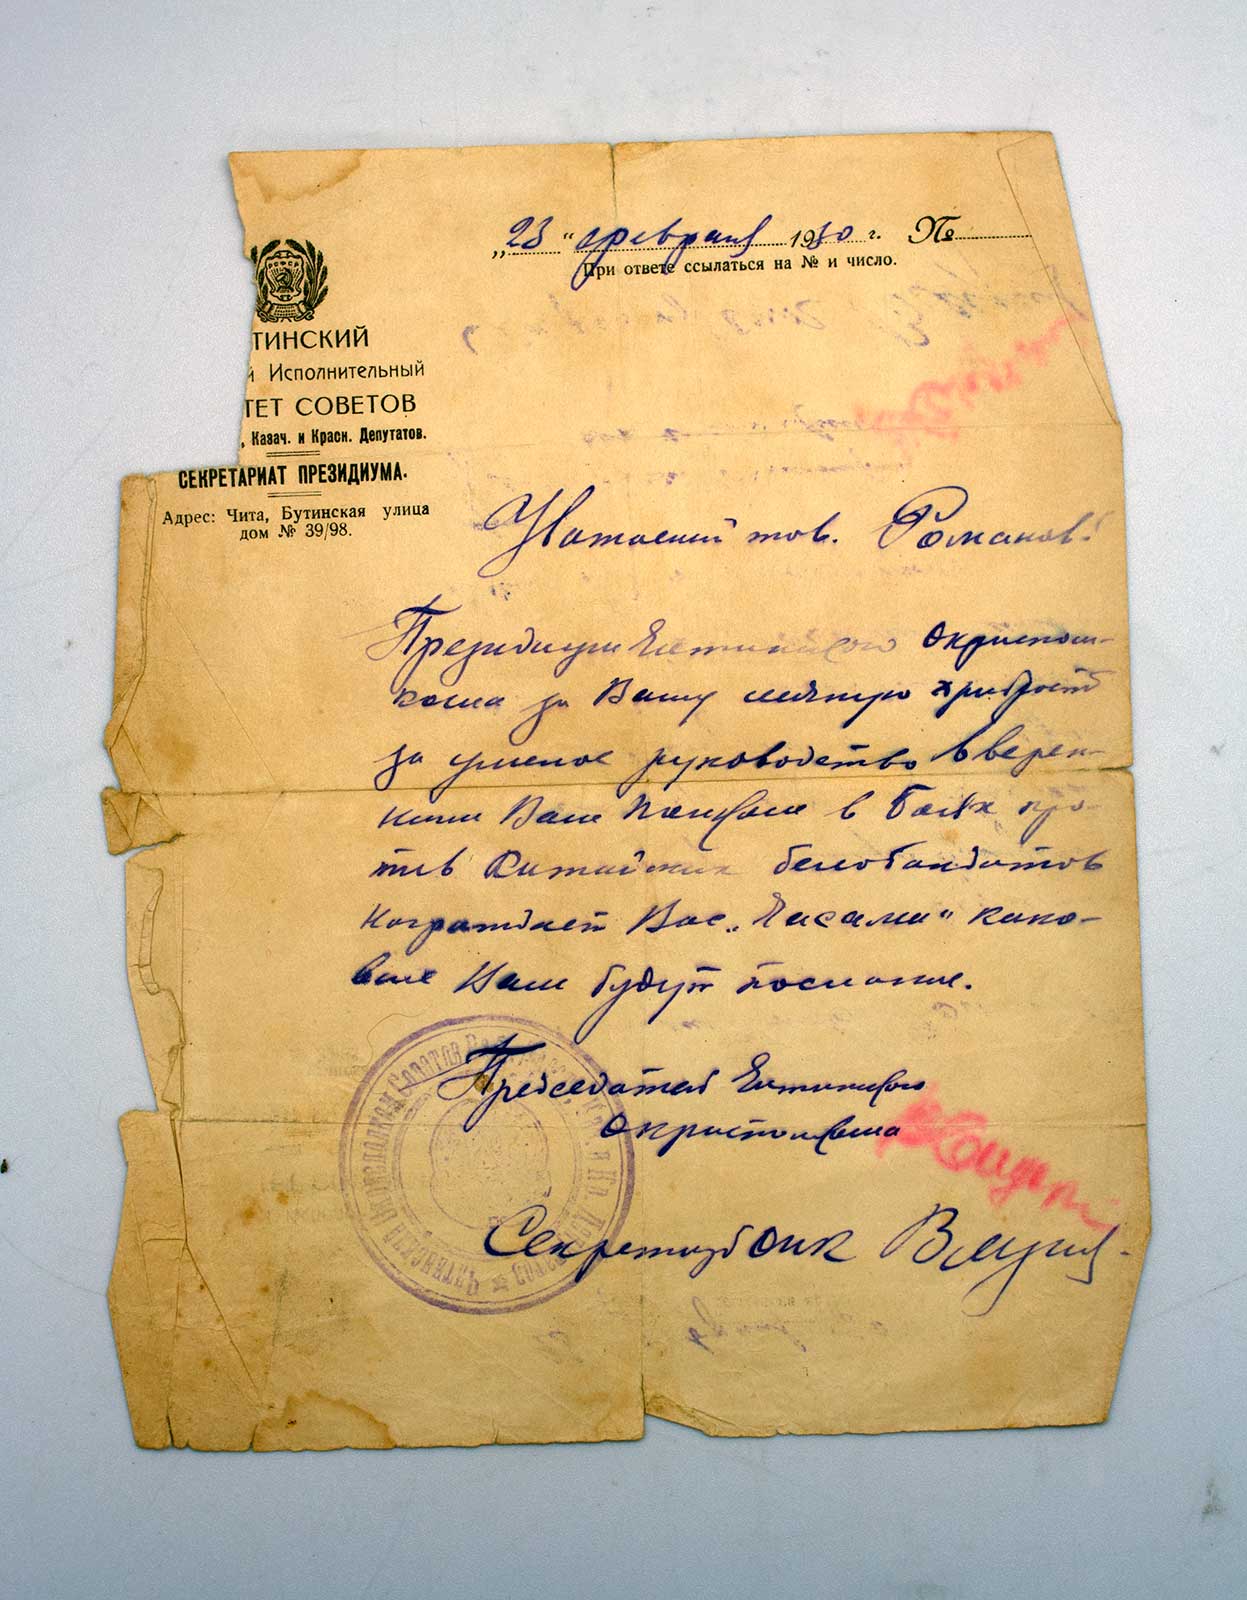 „23“ февраля 1930 г. №
При ответе ссылаться на № и число.
РСФСР
ТИНСКИЙ
й Исполнительный
ТЕТ СОВЕТОВ
, Казач. и Красн. Депутатов.
СЕКРЕТАРИАТ ПРЕЗИДИУМА.
Адрес: Чита, Бутинская улица
дом № 39/98.
Уважаемый тов. Романов!
Президиум Читинского Окриспол-
кома за Вашу личную храбрость
за умелое руководство вверен-
ными Вам в боях про-
тив Китайских белобандитов
награждает Вас „Часами“ како-
вые Вам будут посланы.
Председатель Читинского
Окрисполкома
Секретарь ОИК